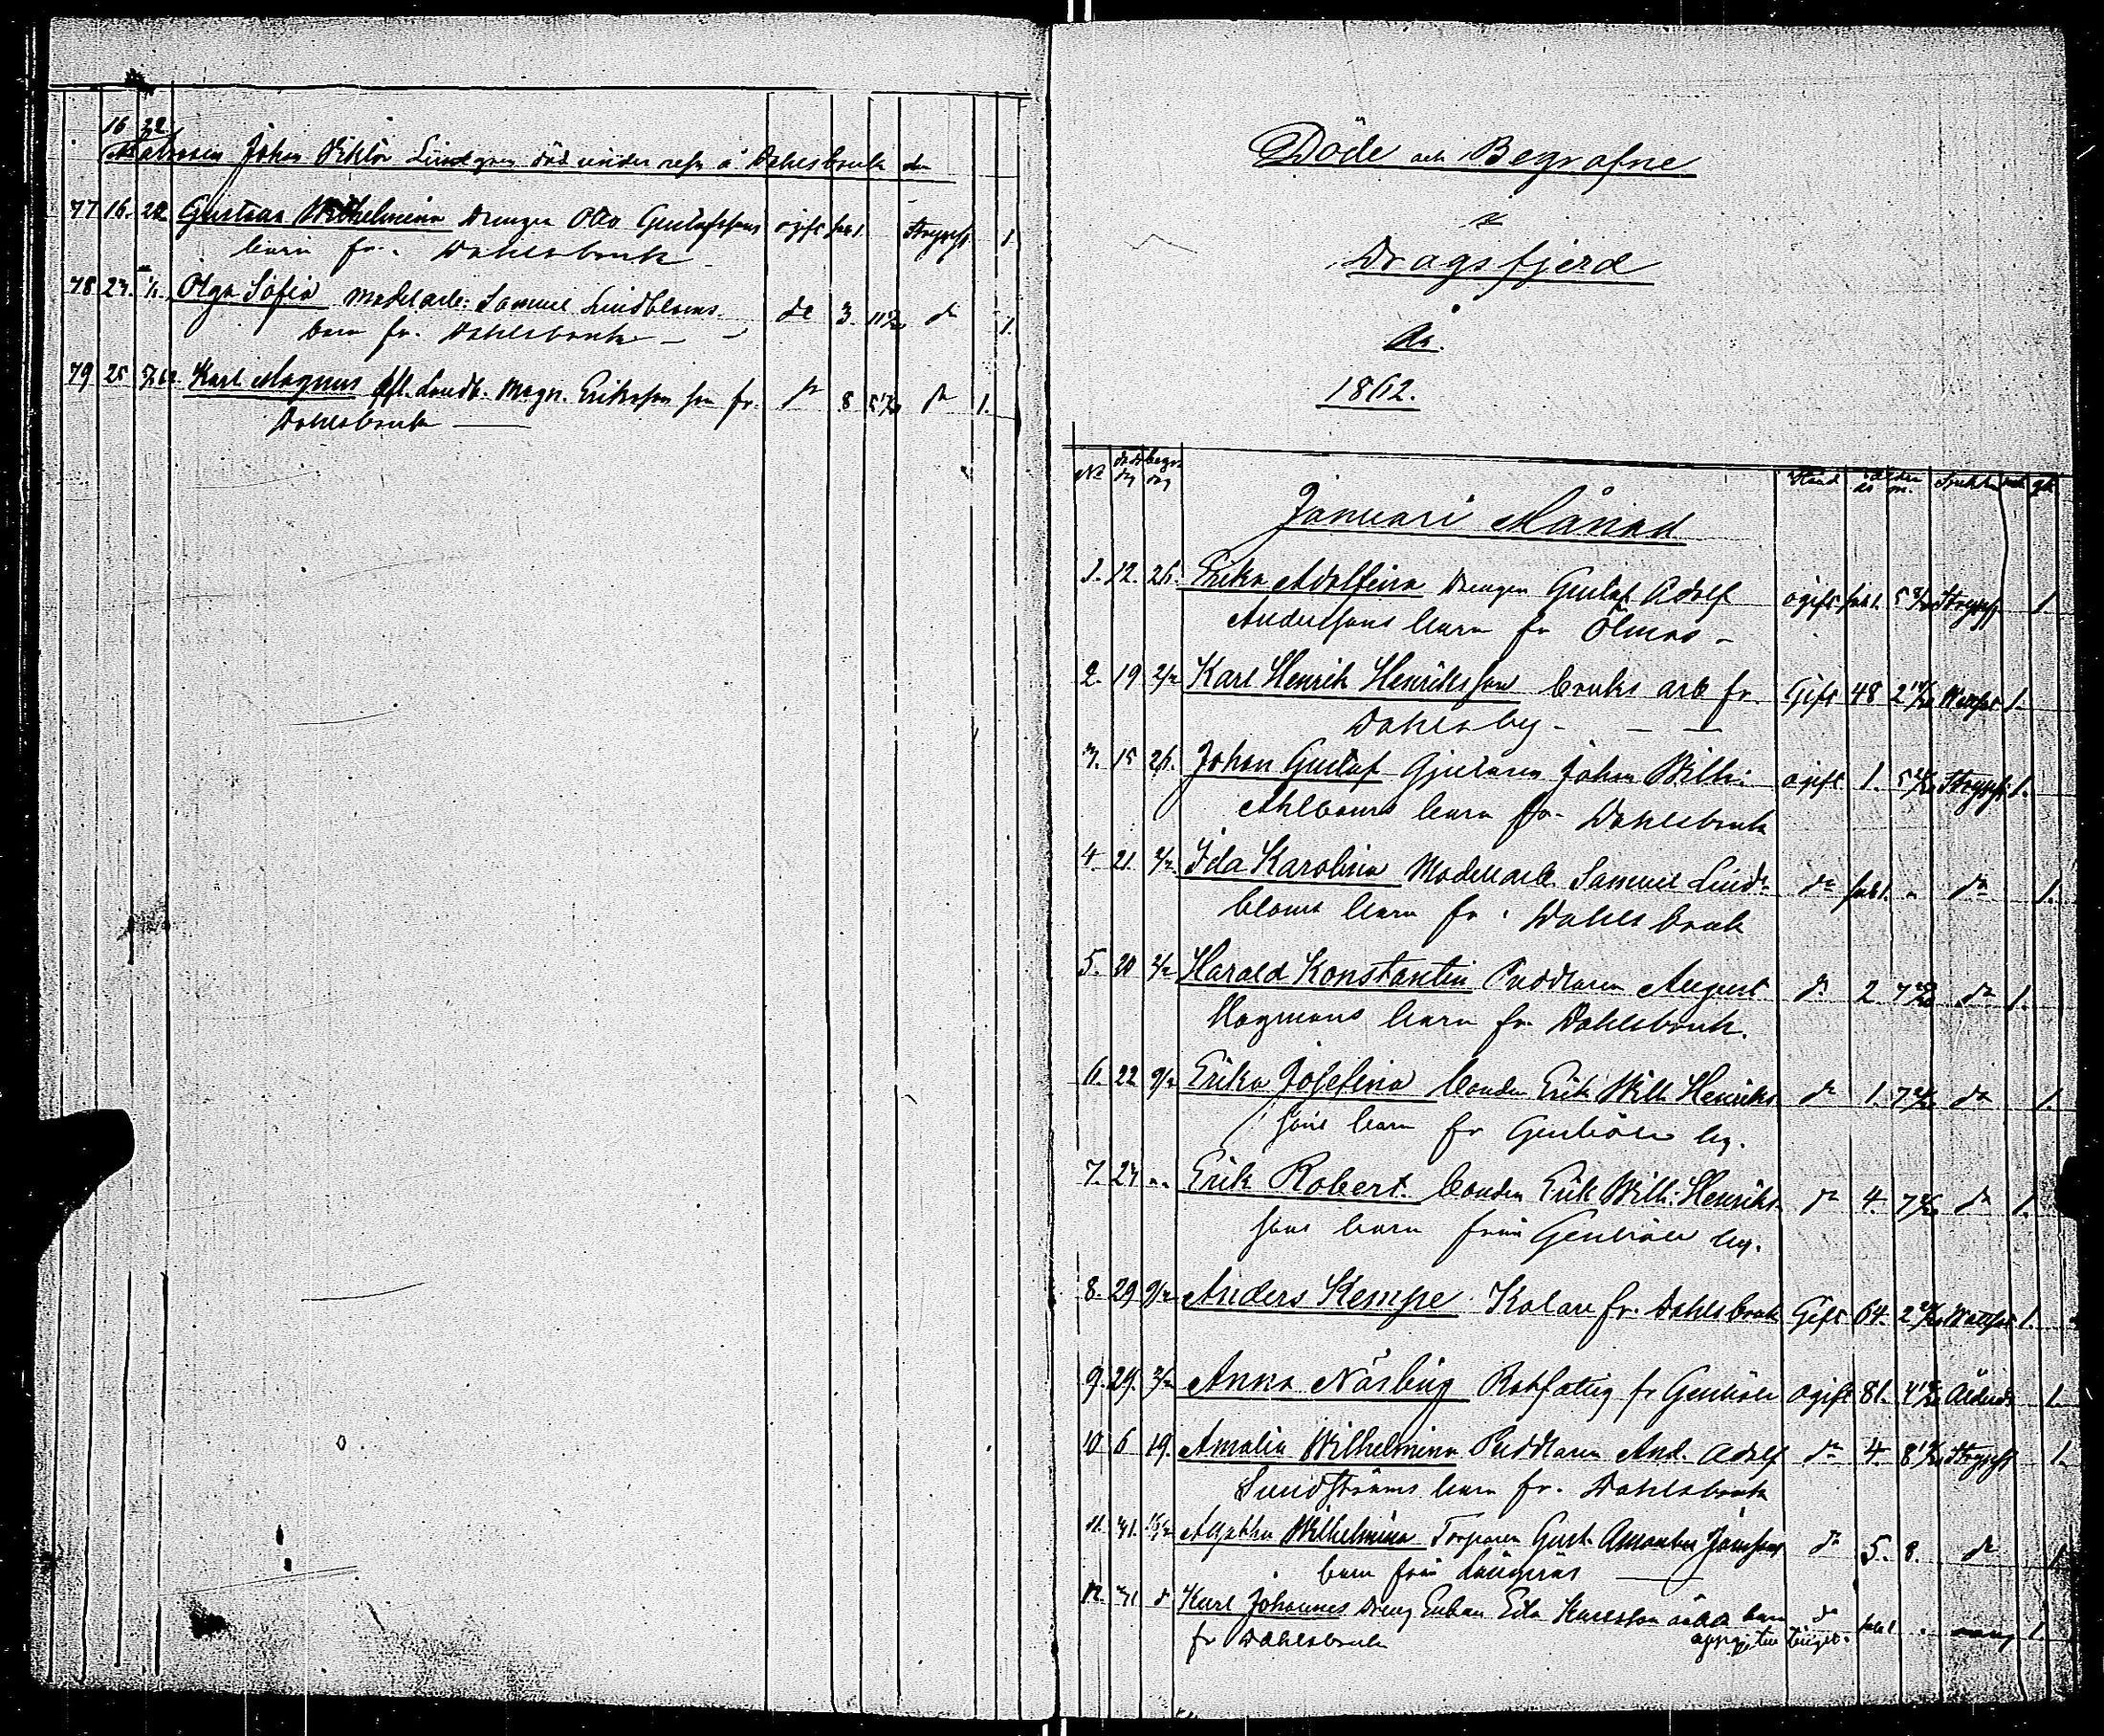 16. 22.
Matrosen Johan Viktor Lindgren död under resa å Dahlsbruk
77 16. 22 Gustava Wilhelmina Drengen Otto Gustafssons ogift Strypsj. 1
barn fr. Dahlsbruk
78 23. Olga Sofia Modelarb: Samuel Lindbloms do 3. do 1.
barn fr. Dahlsbruk
79 25 Karl Magnus Magn. Eriksson son fr. do 8 do 1.
Dahlsbruk
Döde och Begrafne
i
Dragsfjerd
År
1862.
No död dag begr dag Stånd ålder år m. Sjukdom
Januari Månad
1. 12. 26. Erika Adolfina Drengen Gustaf Adolf ogift 5 Strypsj 1
Anderssons barn fr Ölmos
2. 19 2/2 Karl Henrik Henriksson bruks arb fr. Gift 48 2 1.
Dahlsby
3. 15 26. Johan Gustaf Gjutaren Johan Wilh: ogift 1. 5 Strypsj. 1.
Ahlboms barn fr. Dahlsbruk
4. 21. 2/2 Ida Karolina Modellarb. Samuel Lind- do do 1.
bloms barn fr. Dahlsbruk
5. 20 2/2 Harald Konstantin Puddlaren August do 2 7 do 1.
Hagmans barn fr. Dahlsbruk.
6. 22 9/2 Erika Josefina bonden Erik Wilh Henriks do 1. 7 do 1.
sons barn fr Genböle by.
7. 23 " Erik Robert bonden Erik Wilh: Henriks- do 4. 7 do 1.
sons barn från Genböle by.
8. 29 9/2 Anders Kempe Kolare fr. Dahlsbruk Gift 64. 2 Wattsot 1.
9. 29. 2/2 Anna Näsling Rotfattig fr Genböle ogift 81. 4 Ålderd. 1.
10 6 19. Amalia Wilhelmina Puddlaren And. Adolf do 4. 8 Strypsj 1.
Sundströms barn fr. Dahlsbruk
11. 31. Agatha Wilhelmina Torparen Gust. Amandus do 5. 8. do 1
barn från Långnäs
12. 31 d Karl Johannes Dreng Enkan Eda Karlsson barn do 1.
fr Dahlsbruk